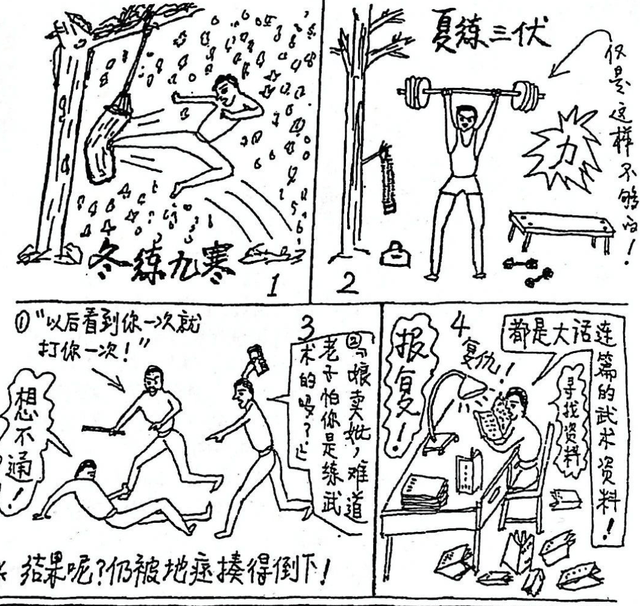 冬练九寒
1
夏练三伏
仅是这样不够的!
力
2
3
①“以后看到你一次就
打你一次!”
②“娘卖妣,难道
老子怕你是练武
术的吗?”
想不通!
结果呢?仍被地痞揍得倒下!
4
报复!
复仇!
都是大话连
篇的武术资料!
寻找资料